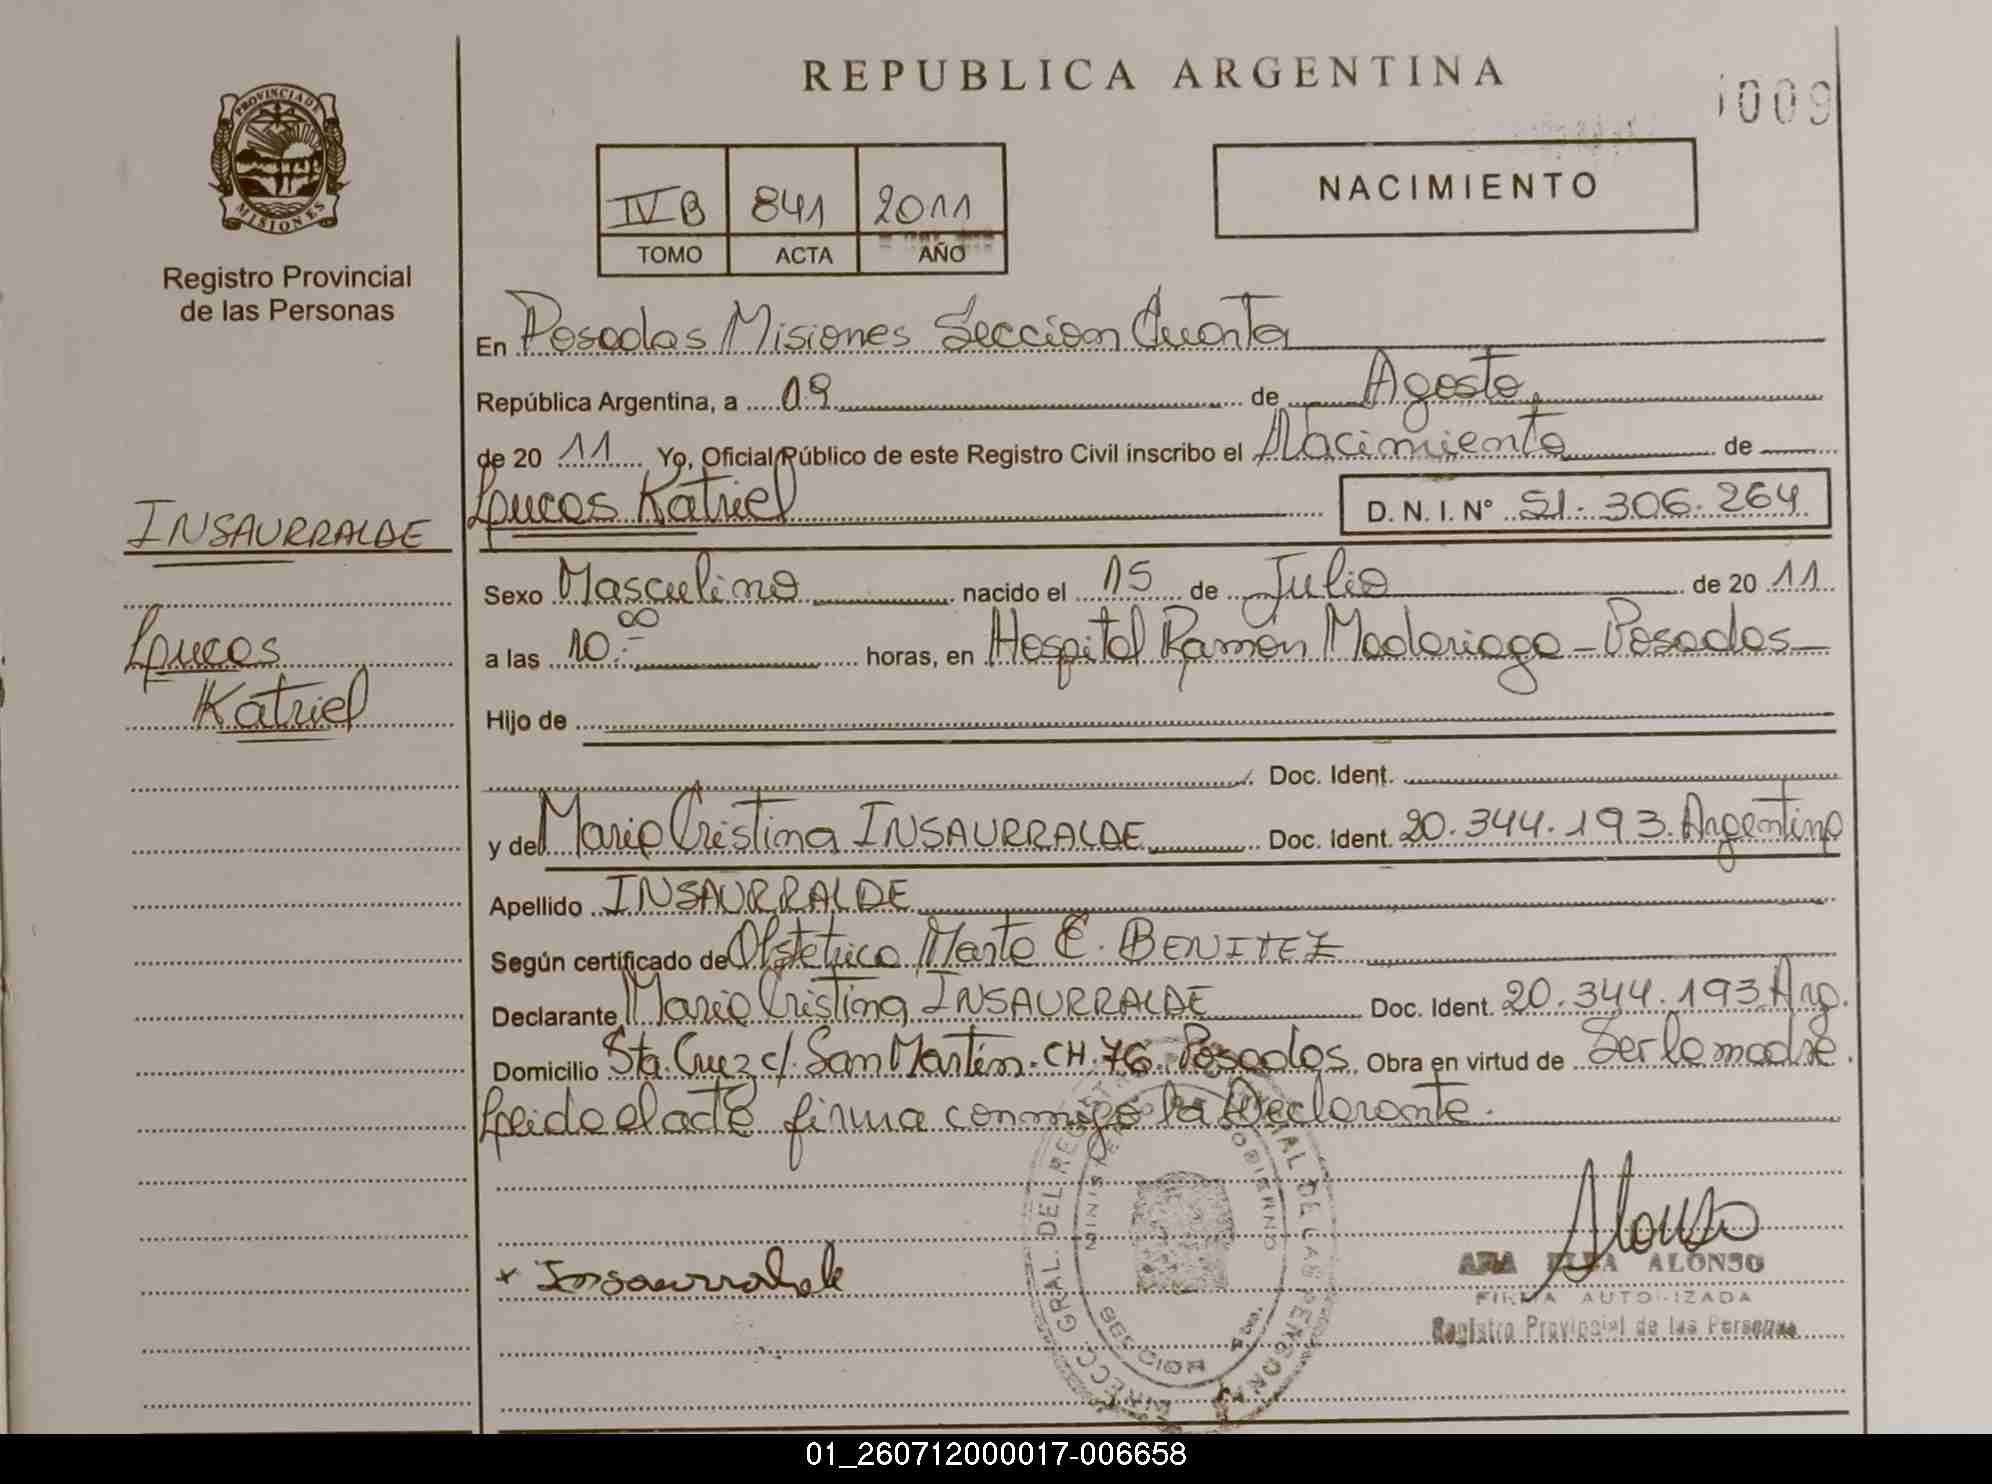 REPUBLICA ARGENTINA
1009
PROVINCIA DE
MISIONES
Registro Provincial
de las Personas
IV B 841 2011
TOMO ACTA AÑO
NACIMIENTO
En Posadas Misiones Sección Cuarta
República Argentina, a 09 de Agosto
de 20 11 Yo, Oficial Público de este Registro Civil inscribo el Nacimiento de
Lucas Katriel D. N. I. N° 51.306.264
INSAURRALDE
Lucas
Katriel
Sexo Masculino nacido el 15 de Julio de 20 11
a las 10.00 horas, en Hospital Ramon Madariaga - Posadas
Hijo de
Doc. Ident.
y de Maria Cristina INSAURRALDE Doc. Ident. 20.344.193. Argentina
Apellido INSAURRALDE
Según certificado de Obstetrica Marta E. BENITEZ
Declarante Maria Cristina INSAURRALDE Doc. Ident. 20.344.193 Arg.
Domicilio Sta. Cruz c/ San Martin. CH. 76. Posadas. Obra en virtud de Ser la madre.
Leido el acta firma conmigo la Declarante.
x Insaurralde
Alonso
ANA ALONSO
FIRMA AUTORIZADA
Registro Provincial de las Personas
01_260712000017-006658